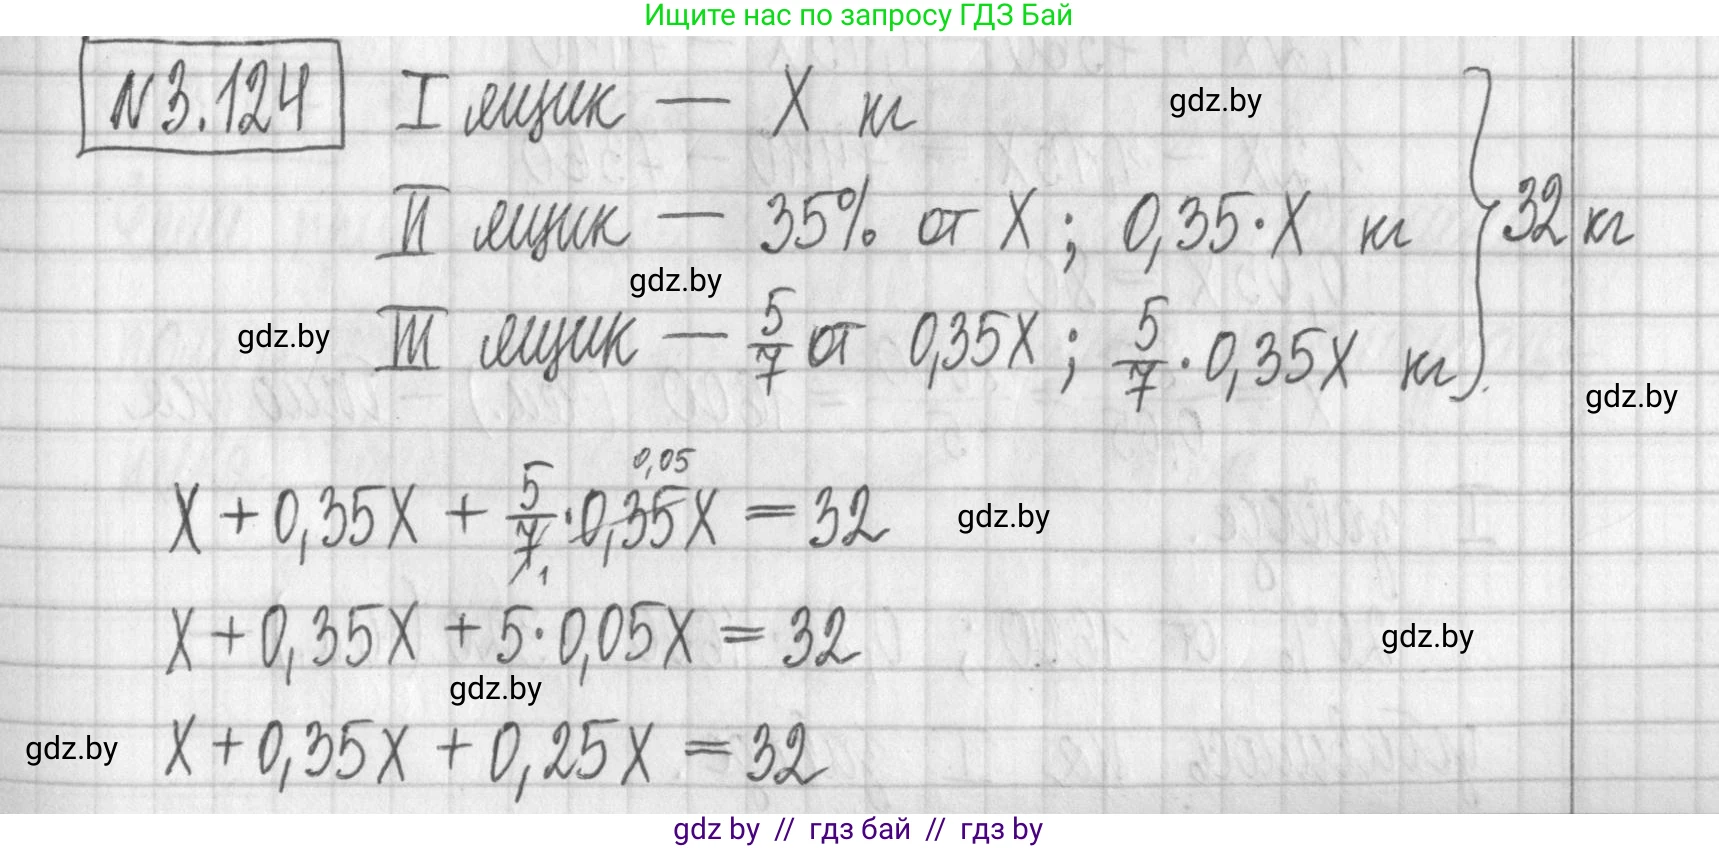 Ищите нас по запросу ГДЗ Бай
N3.124 I ящик — X кг gdz.by
II ящик — 35% от X; 0,35·X кг 32 кг
gdz.by
gdz.by III ящик — 5/7 от 0,35X; 5/7·0,35X кг
gdz.by
0,05
X + 0,35X + 5/7·0,35X = 32 gdz.by
1
X + 0,35X + 5·0,05X = 32 gdz.by
gdz.by
gdz.by X + 0,35X + 0,25X = 32
gdz by // гдз бай // гдз by